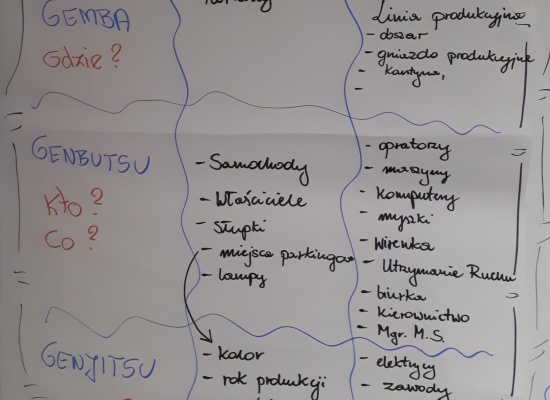 GEMBA
Gdzie?
Linia produkcyjna
- obszar
- gniazdo produkcyjne
- kantyna,
-
GENBUTSU
Kto?
Co?
- Samochody
- Właściciele
- Słupki
- miejsca parkingowe
- lampy
- opratorzy
- maszyny
- Komputery
- myszki
- Wirówka
- Utrzymanie Ruchu
- biurka
- kierownictwo
- Mgr. M.S.
GENJITSU
- kolor
- rok produkcji
- elektrycy
- zawody